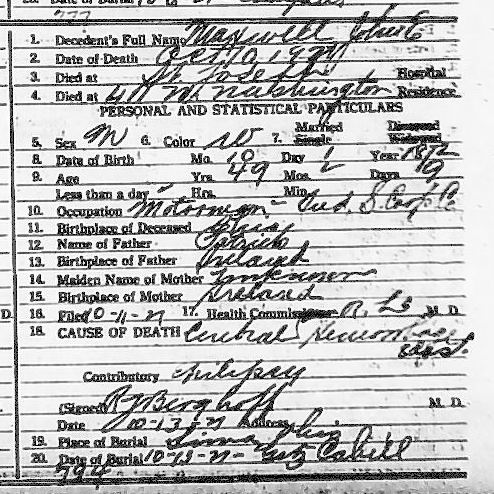 777
1. Decedent's Full Name Maxwell John E
2. Date of Death Oct 10, 1921
3. Died at St Joseph Hospital
4. Died at W. Washington Residence
PERSONAL AND STATISTICAL PARTICULARS
5. Sex M 6. Color W 7. Married Single Divorced Widowed
8. Date of Birth Mo. 10 Day 1 Year 1872
9. Age Yrs. 49 Mos. Days 9
Less than a day Hrs. Min.
10. Occupation Motorman - Ind. S. Corp Co
11. Birthplace of Deceased Ohio
12. Name of Father Patrick
13. Birthplace of Father Ireland
14. Maiden Name of Mother Unknown
15. Birthplace of Mother Ireland
16. Filed 10-11-21 17. Health Commissioner M. D.
18. CAUSE OF DEATH Cerebral Hemorrhage
Contributory Epilepsy
(Signed) Berghoff M. D.
Date 10-13-21 Address
19. Place of Burial
20. Date of Burial 10-13-21 - Cahill
794
D.
D.